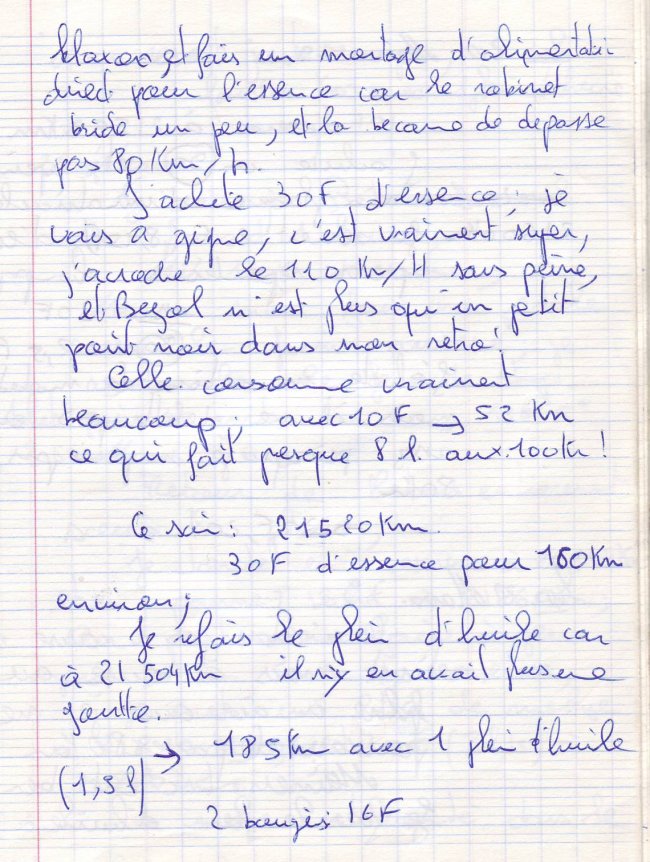 klaxon et fais un montage d'alimentati
direct pour l'essence car le robinet
bride un peu, et la becane de depasse
pas 80 Km/h.
J'achete 30F d'essence; je
vais a gigne, c'est vraiment super,
j'acroche le 110 Km/H sans peine,
et Bezol n'est plus qu'un petit
point noir dans mon retro.
Celle. consomme vraiment
beaucoup; avec 10F → 52 Km
ce qui fait presque 8 l. aux.100Km!
Ce soir: 21520Km.
30F d'essence pour 160Km
environ;
Je refais le plein d'huile car
à 21 504Km il n'y en avait plus une
goutte.
→ 185Km avec 1 plein d'huile
(1,5 l)
2 bougies 16F